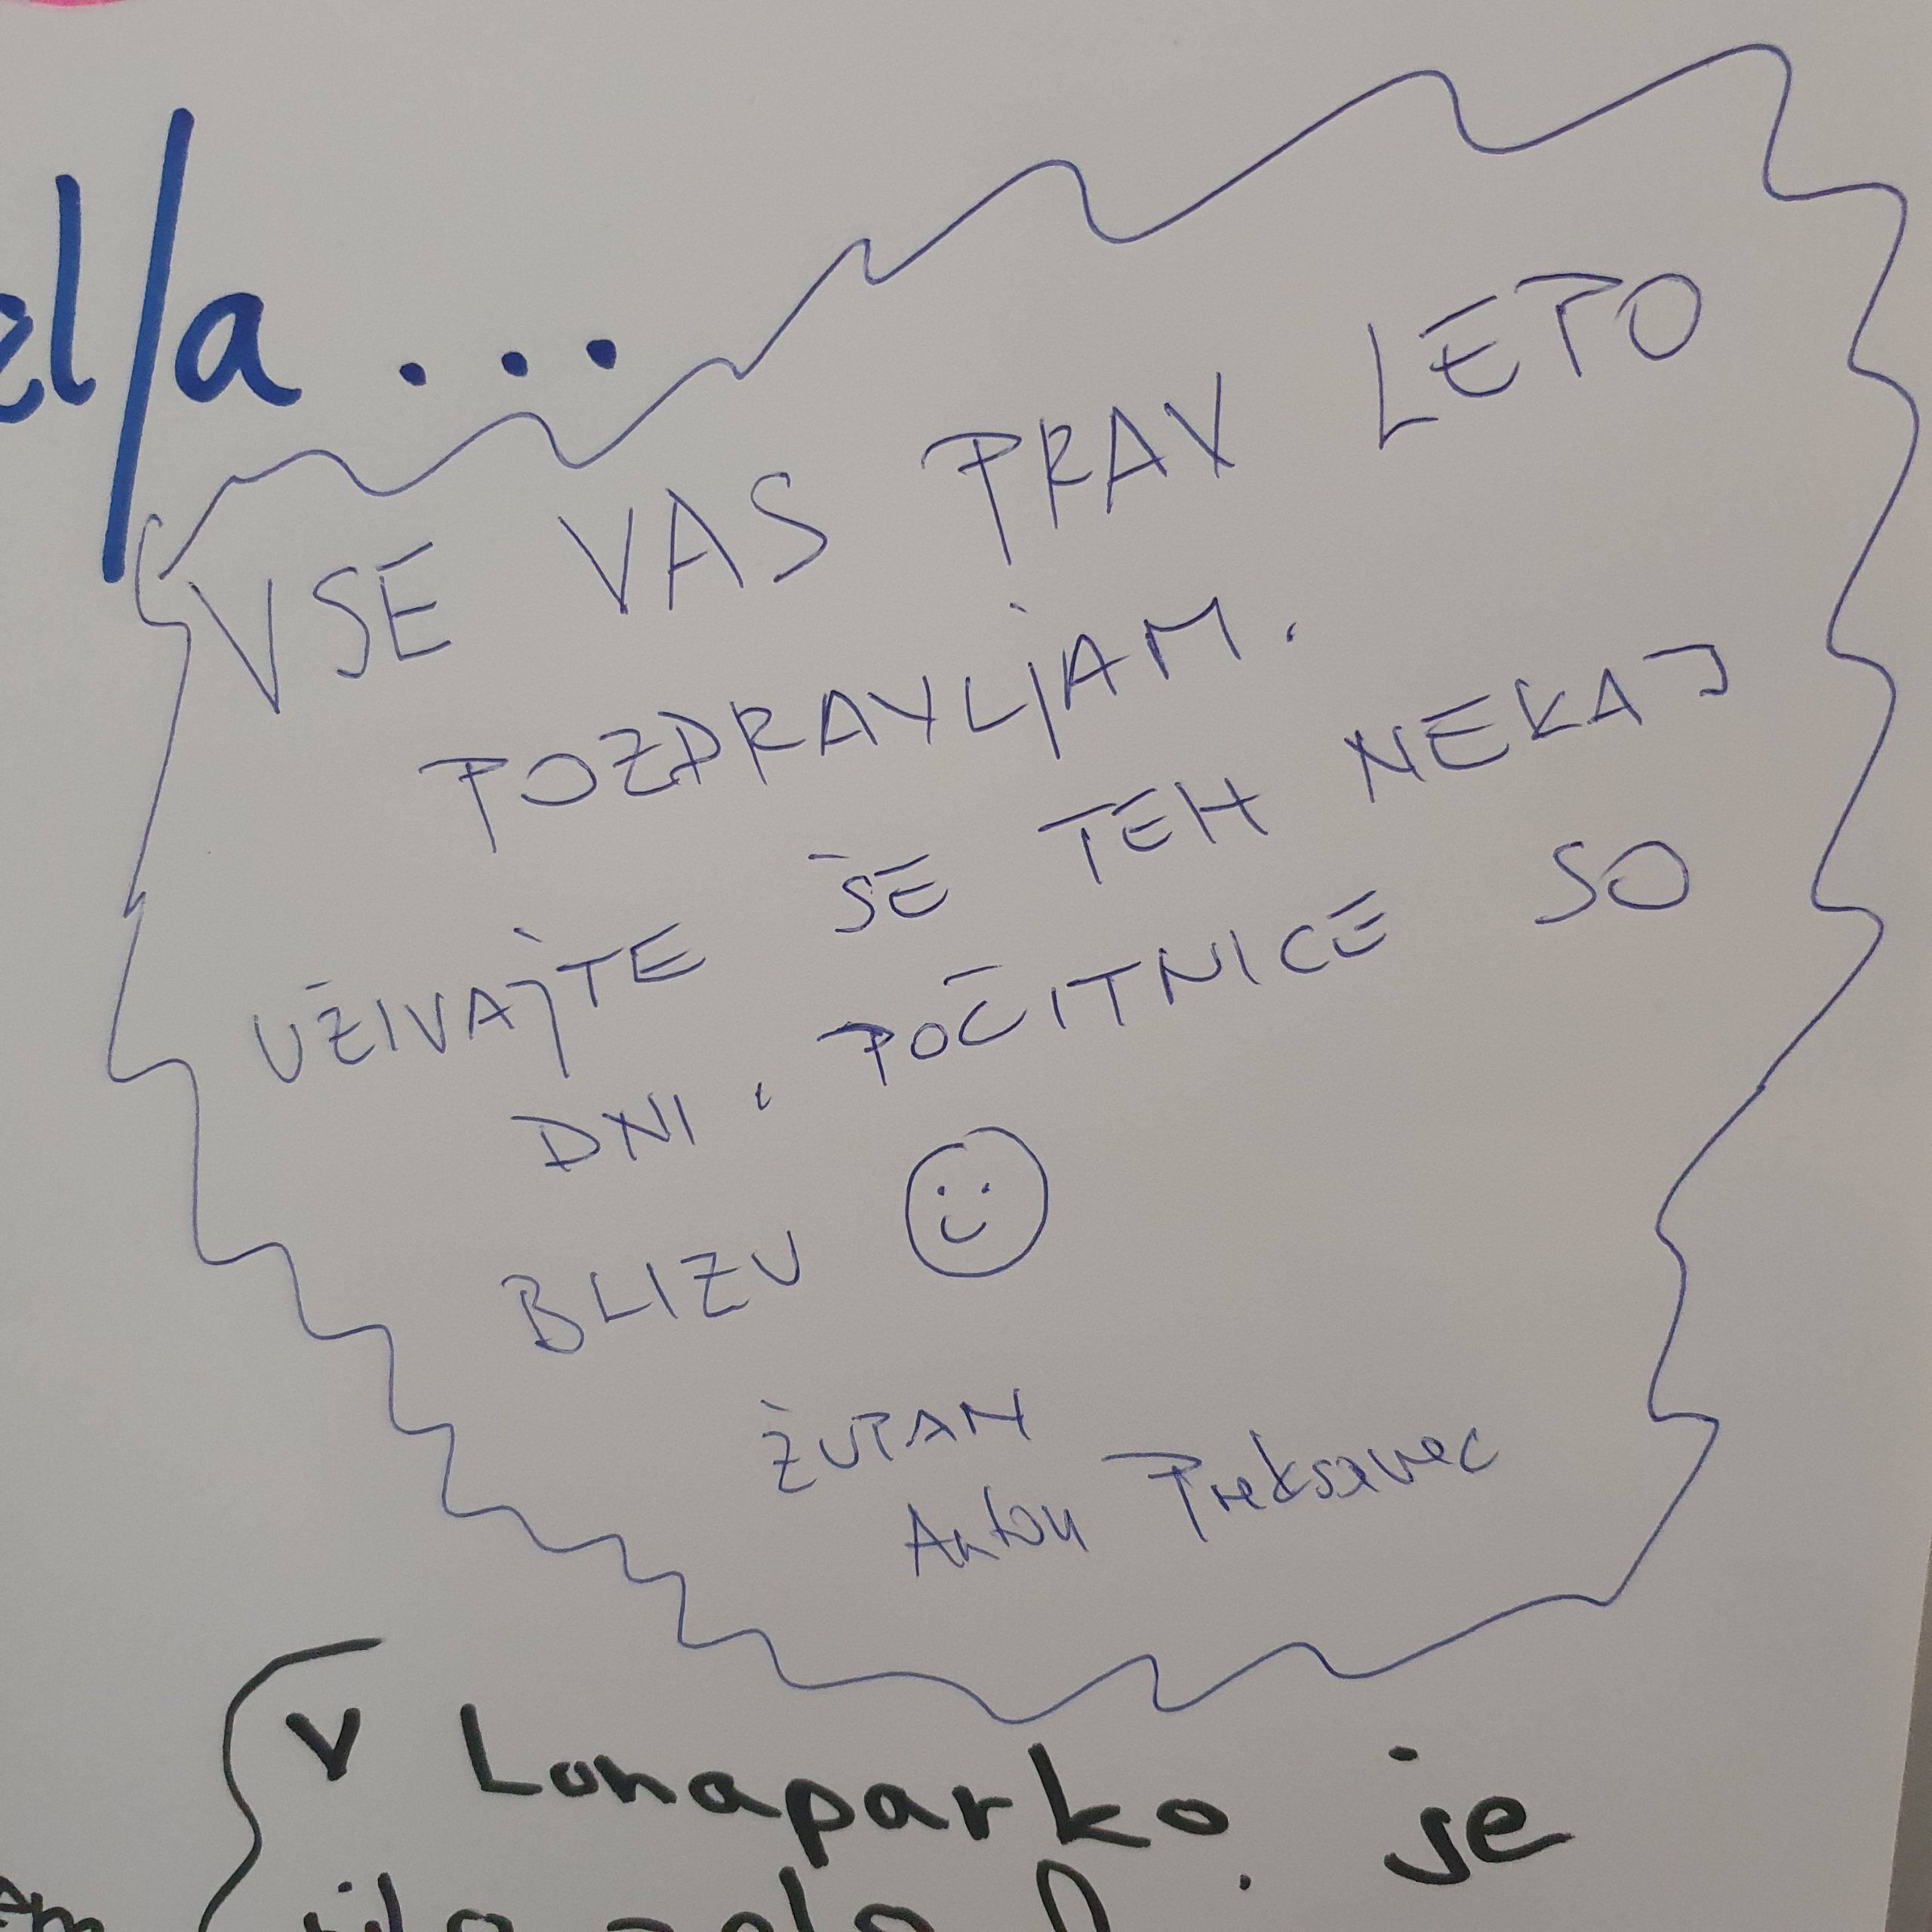 l/a...
VSE VAS PRAV LETO
POZDRAVLJAM.
UŽIVAJTE ŠE TEH NEKAJ
DNI. POČITNICE SO
BLIZU
ŽUPAN
Anton Preksavec
V Lunaparko. je